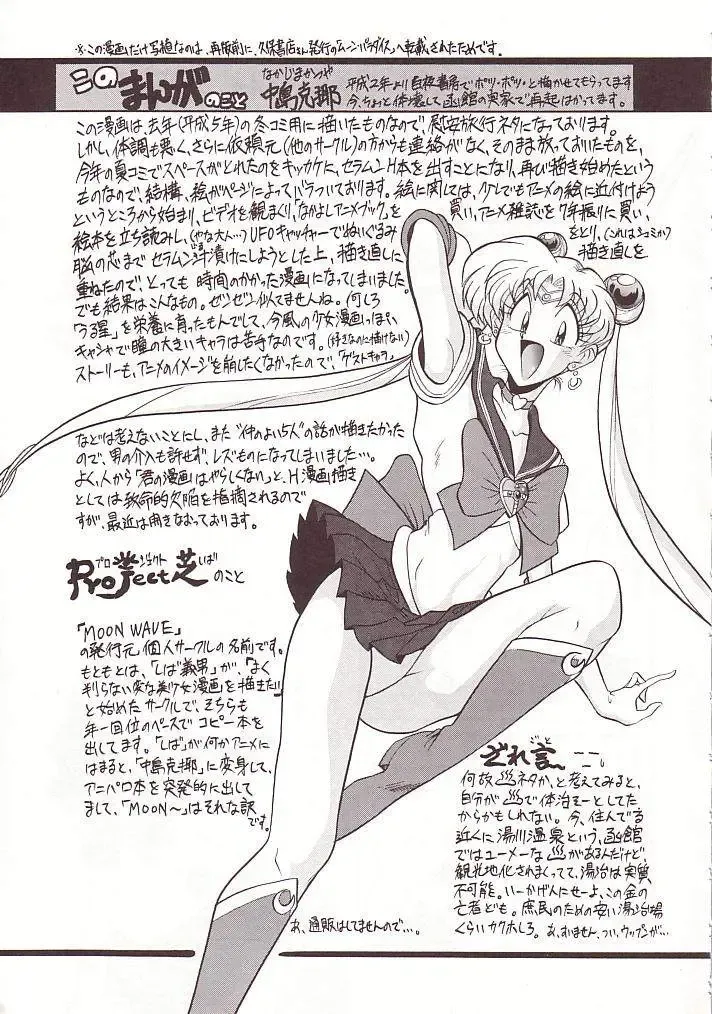 ※この漫画だけ写植なのは、再販前に、久保書店さん発行の「ムーンパラダイス」へ転載されたためです。
このまんがのこと
なかじまかつや
中島克耶
平成2年より白夜書房でポツ・ポツ・と描かせてもらってます
今、ちょっと体壊して函館の実家で再起はかってます。
この漫画は、去年(平成5年)の冬コミ用に描いたものなので、慰安旅行ネタになっております。
しかし、体調も悪く、さらに依頼元(他のサークル)の方からも連絡がなく、そのまま放っておいたものを、
今年の夏コミでスペースがとれたのをキッカケに、セラムンH本を出すことになり、再び描き始めたという
ものなので、結構、絵がページによってバラついております。絵に関しては、少しでもアニメの絵に近付けよう
というところから始まり、ビデオを観まくり「なかよしアニメブック」を買い、アニメ雑誌を7年振りに買い、
絵本を立ち読みし、(やな大人…)UFOキャッチャーでぬいぐるみをとり、(これはシュミか)
脳の芯までセラムン汁漬けにしようとした上、描き直しに描き直しを
重ねたので、とっても時間のかかった漫画になってしまいました。
でも結果はこんなもの。ゼンゼン似てませんね。何しろ
「うる星」を栄養に育ったもんでして、今風の少女漫画っぽい
キャシャで瞳の大きいキャラは苦手なのです。(好きなのに描けない)
ストーリーも、アニメのイメージを崩したくなかったので、「ゲストキャラ」
などは考えないことにし、また“仲のよい5人”の話が描きたかった
ので、男の介入も許せず、レズものになってしまいました…。
よく、人から「君の漫画はやらしくない」と、H漫画描き
としては致命的欠陥を指摘されるので
すが、最近は開きなおっております。
プロジェクトしば
Project芝のこと
「MOON WAVE」
の発行元、個人サークルの名前です。
もともとは、「しば義男」が「よく
判らない変な美少女漫画」を描きたい
と始めたサークルで、そちらも
年一回位のペースでコピー本を
出してます。「しば」が何かアニメに
はまると、「中島克耶」に変身して、
アニパロ本を突発的に出して
まして、「MOON〜」はそれな訳
です。
ざれごと
ざれ言
何故♨ネタか、と考えてみると、
自分が♨で体治そーとしてた
からかもしれない。今、住んでる
近くに湯川温泉という、函館
ではユーメーな♨があるんだけど、
観光地化されまくってて、湯治は実質
不可能。いーかげんにせーよ、この金の
亡者ども。庶民のための安い湯治場
くらいカクホしろ。あ、すいません、つい、ウップンが…
あ、通販はしてませんので…。